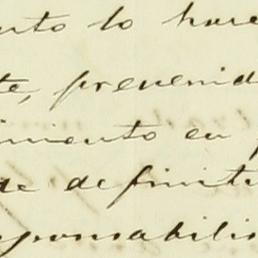 nto lo hare
te, prevenid
imiento en
de definiti
sponsabilis